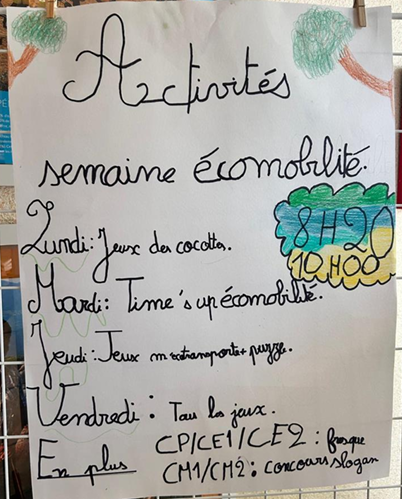 Activités
semaine écomobilité.
8H20
10H00
Lundi: Jeux des cocottes.
Mardi: Time's up écomobilité.
Jeudi: Jeux transports + puzze.
Vendredi: Tous les jeux.
En plus CP/CE1/CE2: fresque
CM1/CM2: concours slogan